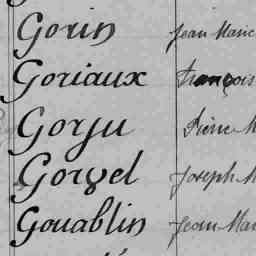 Gorin Jean Marie
Goriaux François
Gorju Pierre M
Gorvel Joseph M
Gouablin Jean Mar